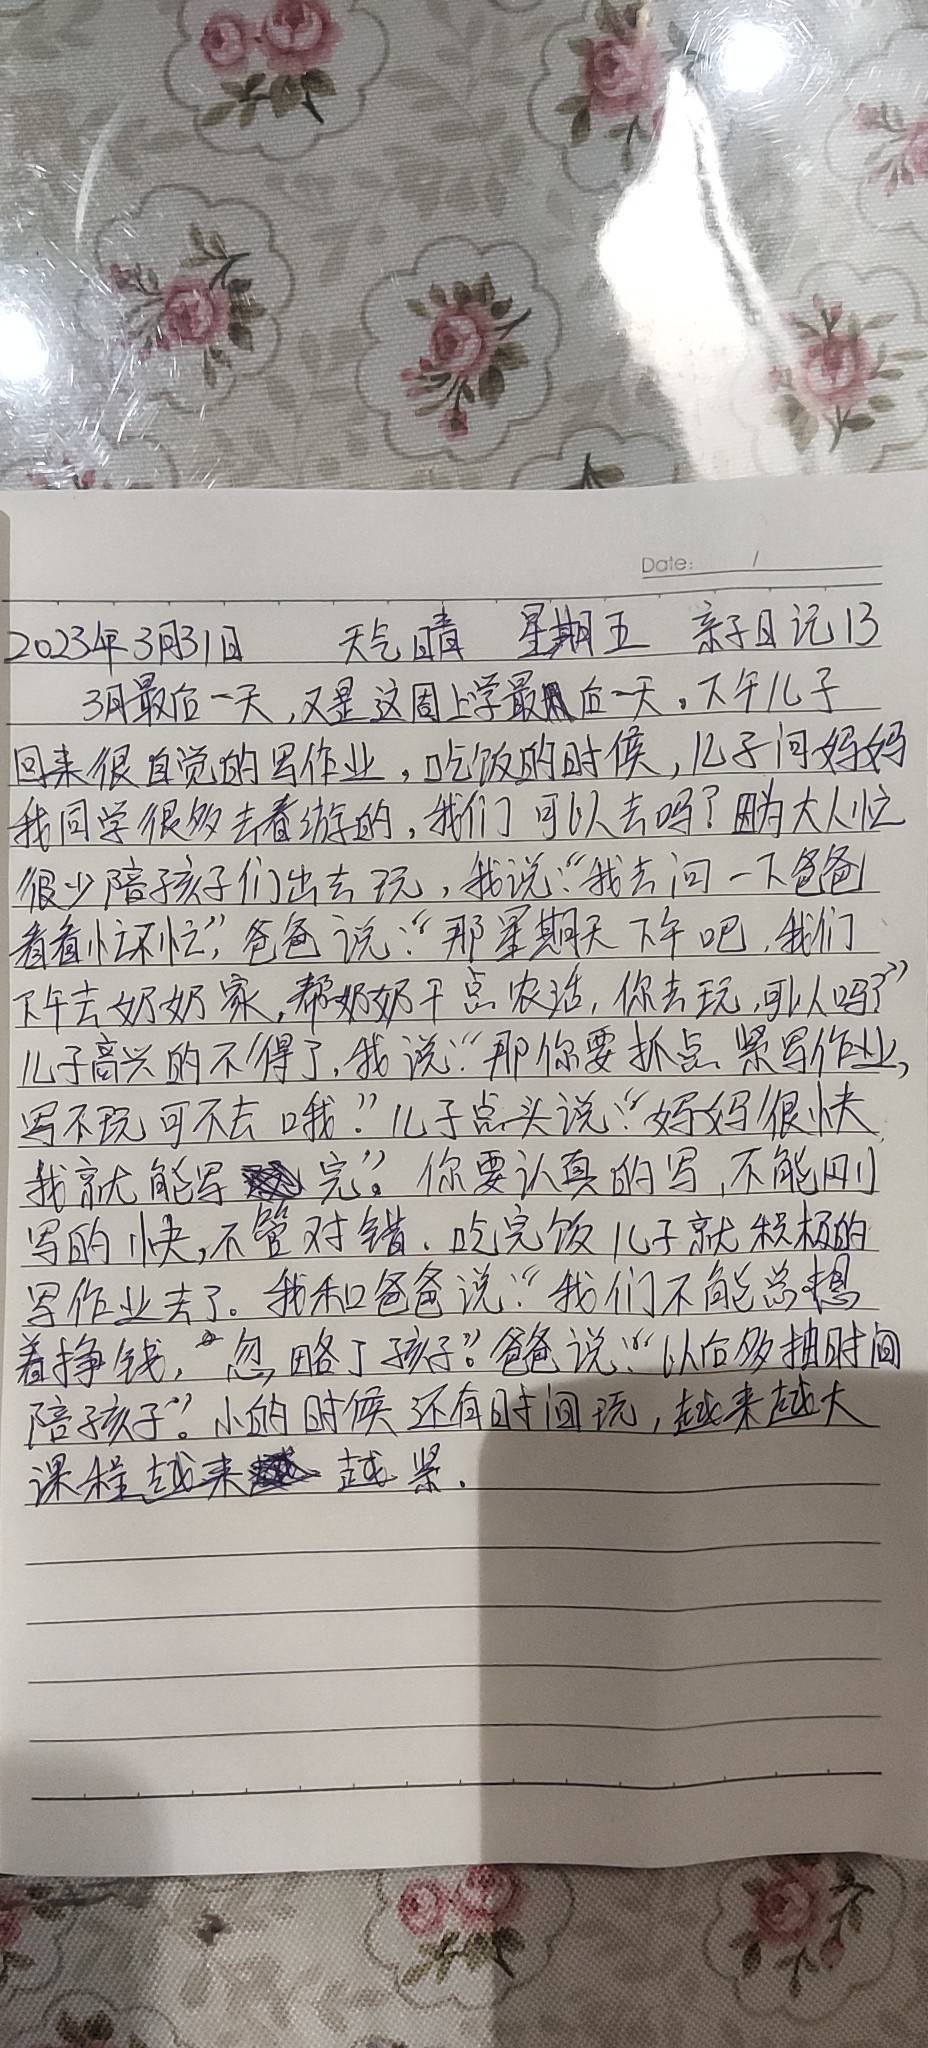 Date: /
2023年3月31日 天气晴 星期五 亲子日记13
3月最后一天,又是这周上学最后一天。下午儿子
回来很自觉的写作业,吃饭的时候,儿子问妈妈
我同学很多去春游的,我们可以去吗?因为大人忙
很少陪孩子们出去玩,我说:“我去问一下爸爸
看看忙不忙”,爸爸说:“那星期天下午吧,我们
下午去奶奶家,帮奶奶干点农活,你去玩,可以吗?”
儿子高兴的不得了,我说:“那你要抓点紧写作业,
写不玩可不去哦?”儿子点头说:“妈妈很快
我就能写完”。你要认真的写,不能刚
写的快,不管对错.吃完饭儿子就积极的
写作业去了。我和爸爸说:“我们不能总想
着挣钱,“忽略了孩子”。爸爸说:“以后多抽时间
陪孩子”。小的时候还有时间玩,越来越大
课程越来越紧.